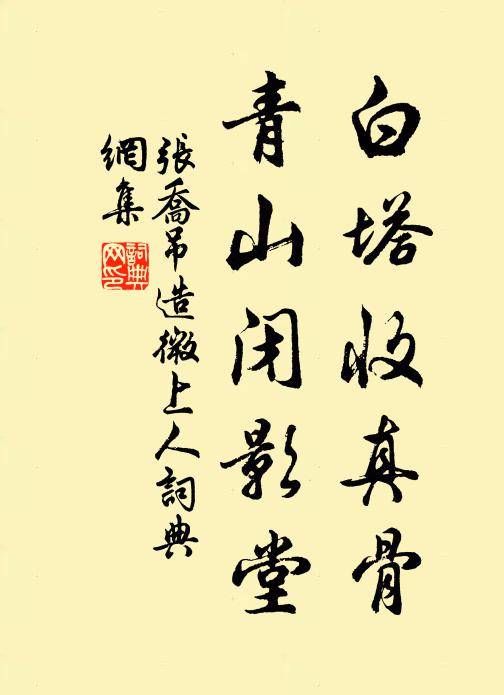 白塔收真骨
青山闭影堂
張喬吊造微上人詞典
網集
詞典
网印